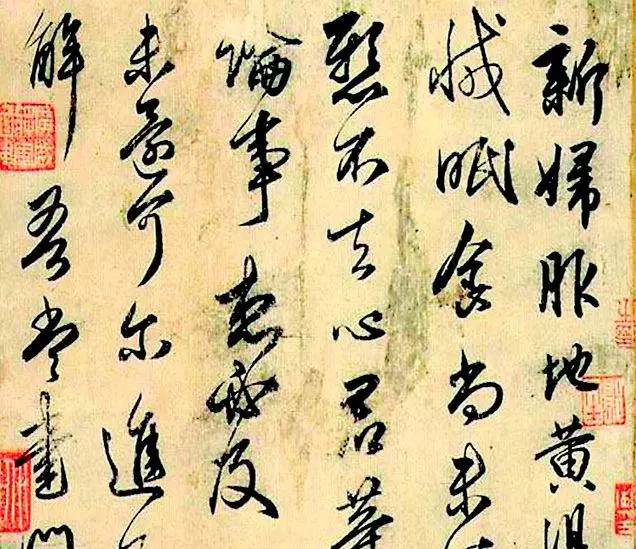 新婦服地黃湯
減眠食尚未
懸不去心君等
論事想必及
未還何尔進
解吾當書問